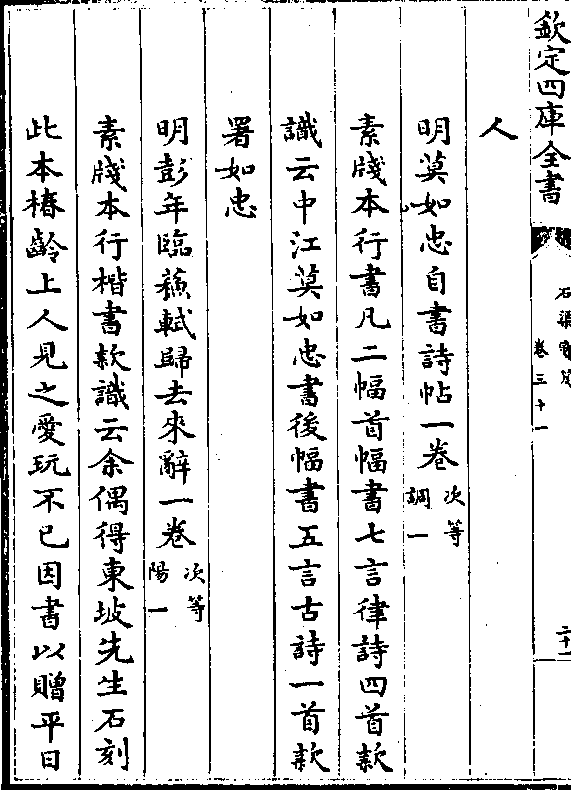 欽定四庫全書
石渠寶笈
卷三十一
人
明莫如忠自書詩帖一卷 次等調一
素牋本行書凡二幅首幅書七言律詩四首款
識云中江莫如忠書後幅書五言古詩一首款
署如忠
明彭年臨蘇軾歸去來辭一卷 次等陽一
素牋本行楷書款識云余偶得東坡先生石刻
此本椿齡上人見之愛玩不已因書以贈平日